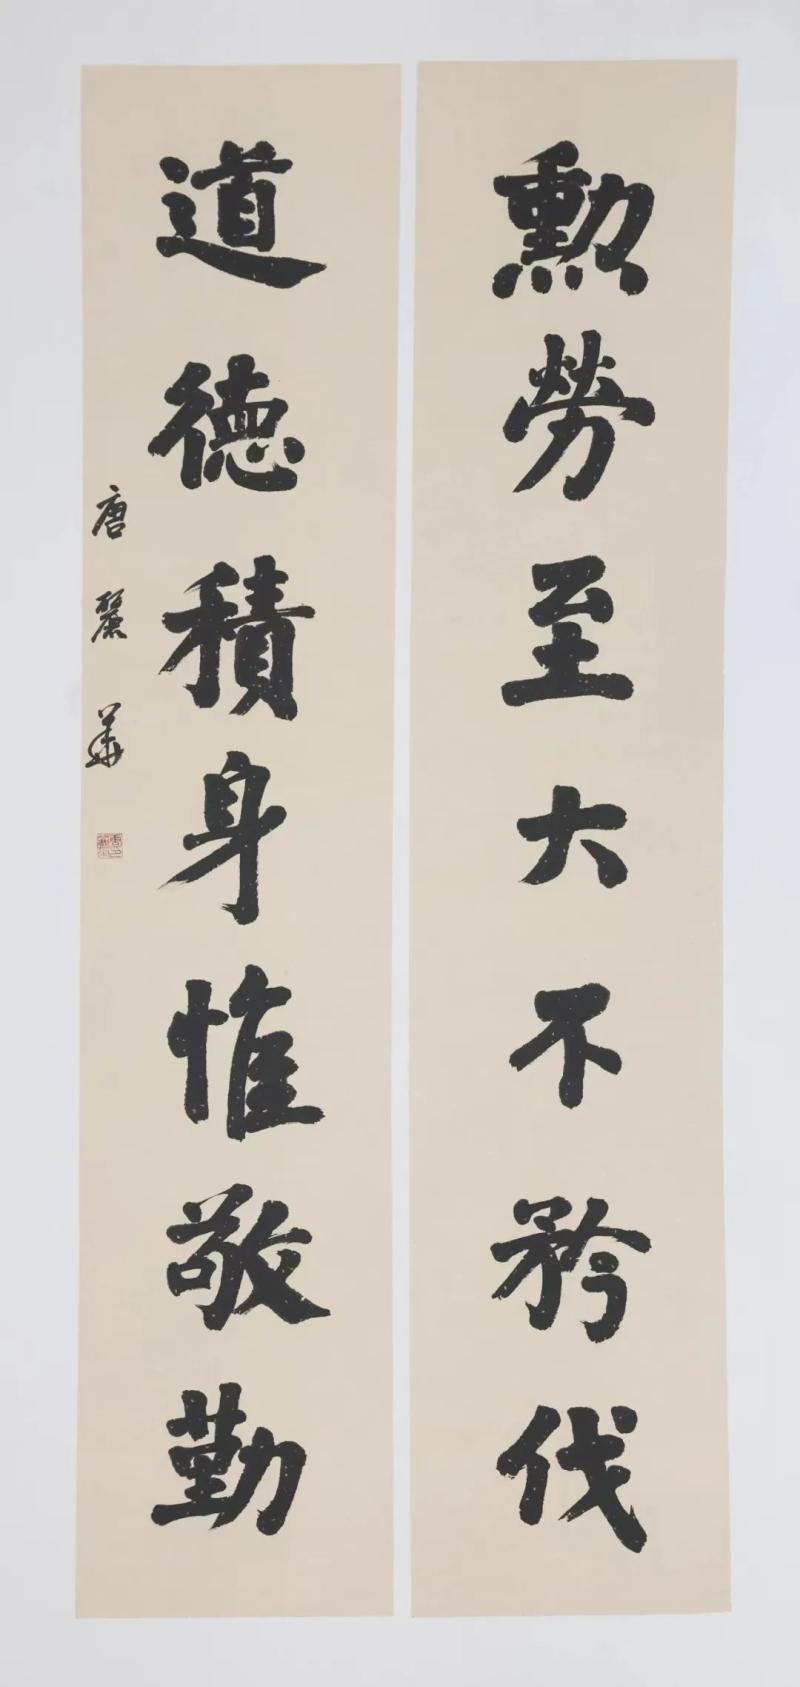 勲勞至大不矜伐
道德積身惟敬勤
唐麗華